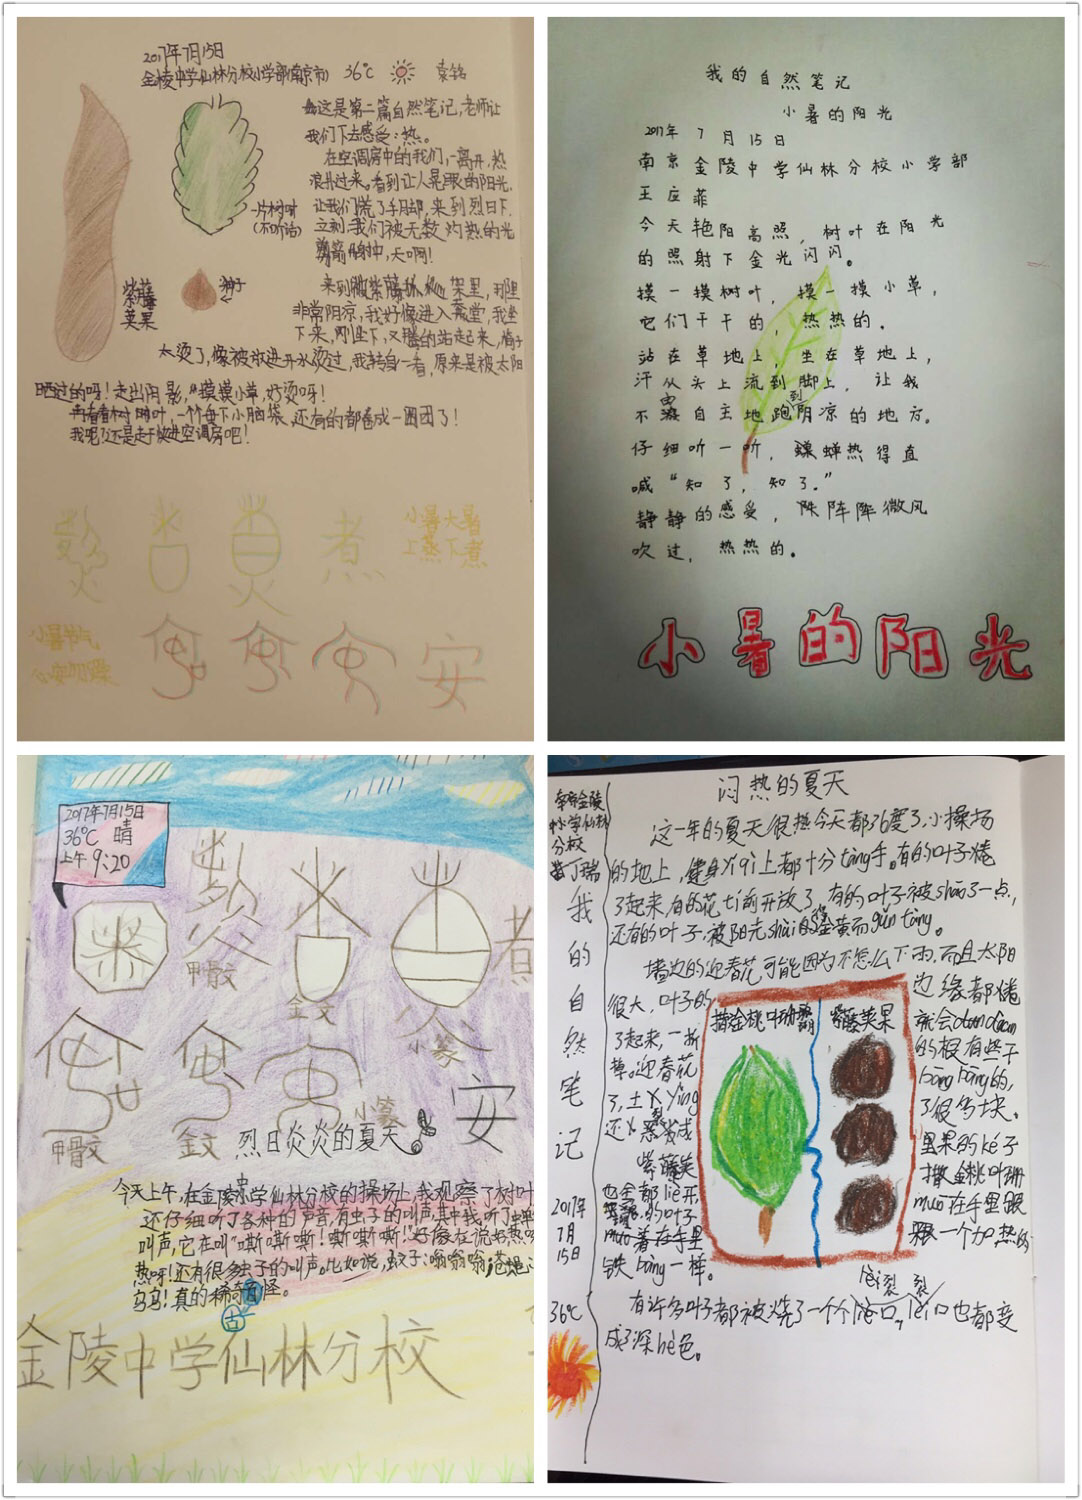 2017年7月15日
金陵中学仙林分校小学部(南京市) 36℃
这是第二篇自然笔记,老师让
我们下去感受:热。
在空调房中的我们,一离开,热
浪扑过来。看到让人晃眼的阳光,
让我们慌了手脚,来到烈日下,
立刻,我们被无数灼热的光
箭射中,天啊!
一片树叶
(不听话)
紫藤
荚果
种子
来到紫藤架里,那里
非常阴凉,我好像进入天堂,我坐
下来,刚坐下,又的站起来,椅子
太烫了,像被放进开水烫过,我转身一看,原来是被太阳
晒过的呀!走出阴影,“摸摸小草,好烫呀!
再看看树叶,一个垂下小脑袋,还有的都卷成一团团了!
我呢?还是赶快进空调房吧!
煮
小暑大暑
上蒸下煮
小暑节气
安
我的自然笔记
小暑的阳光
2017年 7月15日
南京金陵中学仙林分校小学部
王应菲
今天艳阳高照,树叶在阳光
的照射下金光闪闪。
摸一摸树叶,摸一摸小草,
它们干干的,热热的。
站在草地上,坐在草地上,
汗从头上流到脚上,让我
不由自主地跑到阴凉的地方。
仔细听一听,蝉热得直
喊“知了,知了。”
静静的感受,阵阵微风
吹过,热热的。
小暑的阳光
2017年7月15日
36℃ 晴
上午9:20
甲骨文
金文
小篆
煮
甲骨文
金文
小篆
安
烈日炎炎的夏天
今天上午,在金陵中学仙林分校的操场上,我观察了树叶
还仔细听了各种的声音,有虫子的叫声,其中我听了蝉
叫声,它在叫“嘶嘶嘶!嘶嘶嘶!”好像在说好热呀
热呀!还有很多虫子的叫声。比如说,蚊子:嗡嗡嗡;苍蝇
!真的稀奇古怪。
古
金陵中学仙林分校
闷热的夏天
金陵
中学仙林
分校
丁瑞
我的自然笔记
2017年
7月
15日
36℃
这一年的夏天很热今天都36度了,小操场
的地上,健身qì上都十分tàng手。有的叶子卷
了起来,有的花tí前开放了,有的叶子被shāo了一点,
还有的叶子,被阳光shài的金黄而gǔn tàng。
墙边的迎春花可能因为不怎么下雨,而且太阳
很大,叶子的边缘都卷
了起来,一折就会duàn
掉。迎春花的根有些干
了,土yǐng bāng bāng的,
还裂成了很多块。
紫藤荚果的ké子
也全都liè开
的叶子mō在手里
mō着在手里跟一个加热的
铁bǎng一样。
洒金桃叶珊瑚
紫藤荚果
有许多叶子都被烧了一个个口,口也都变
成了深hè色。